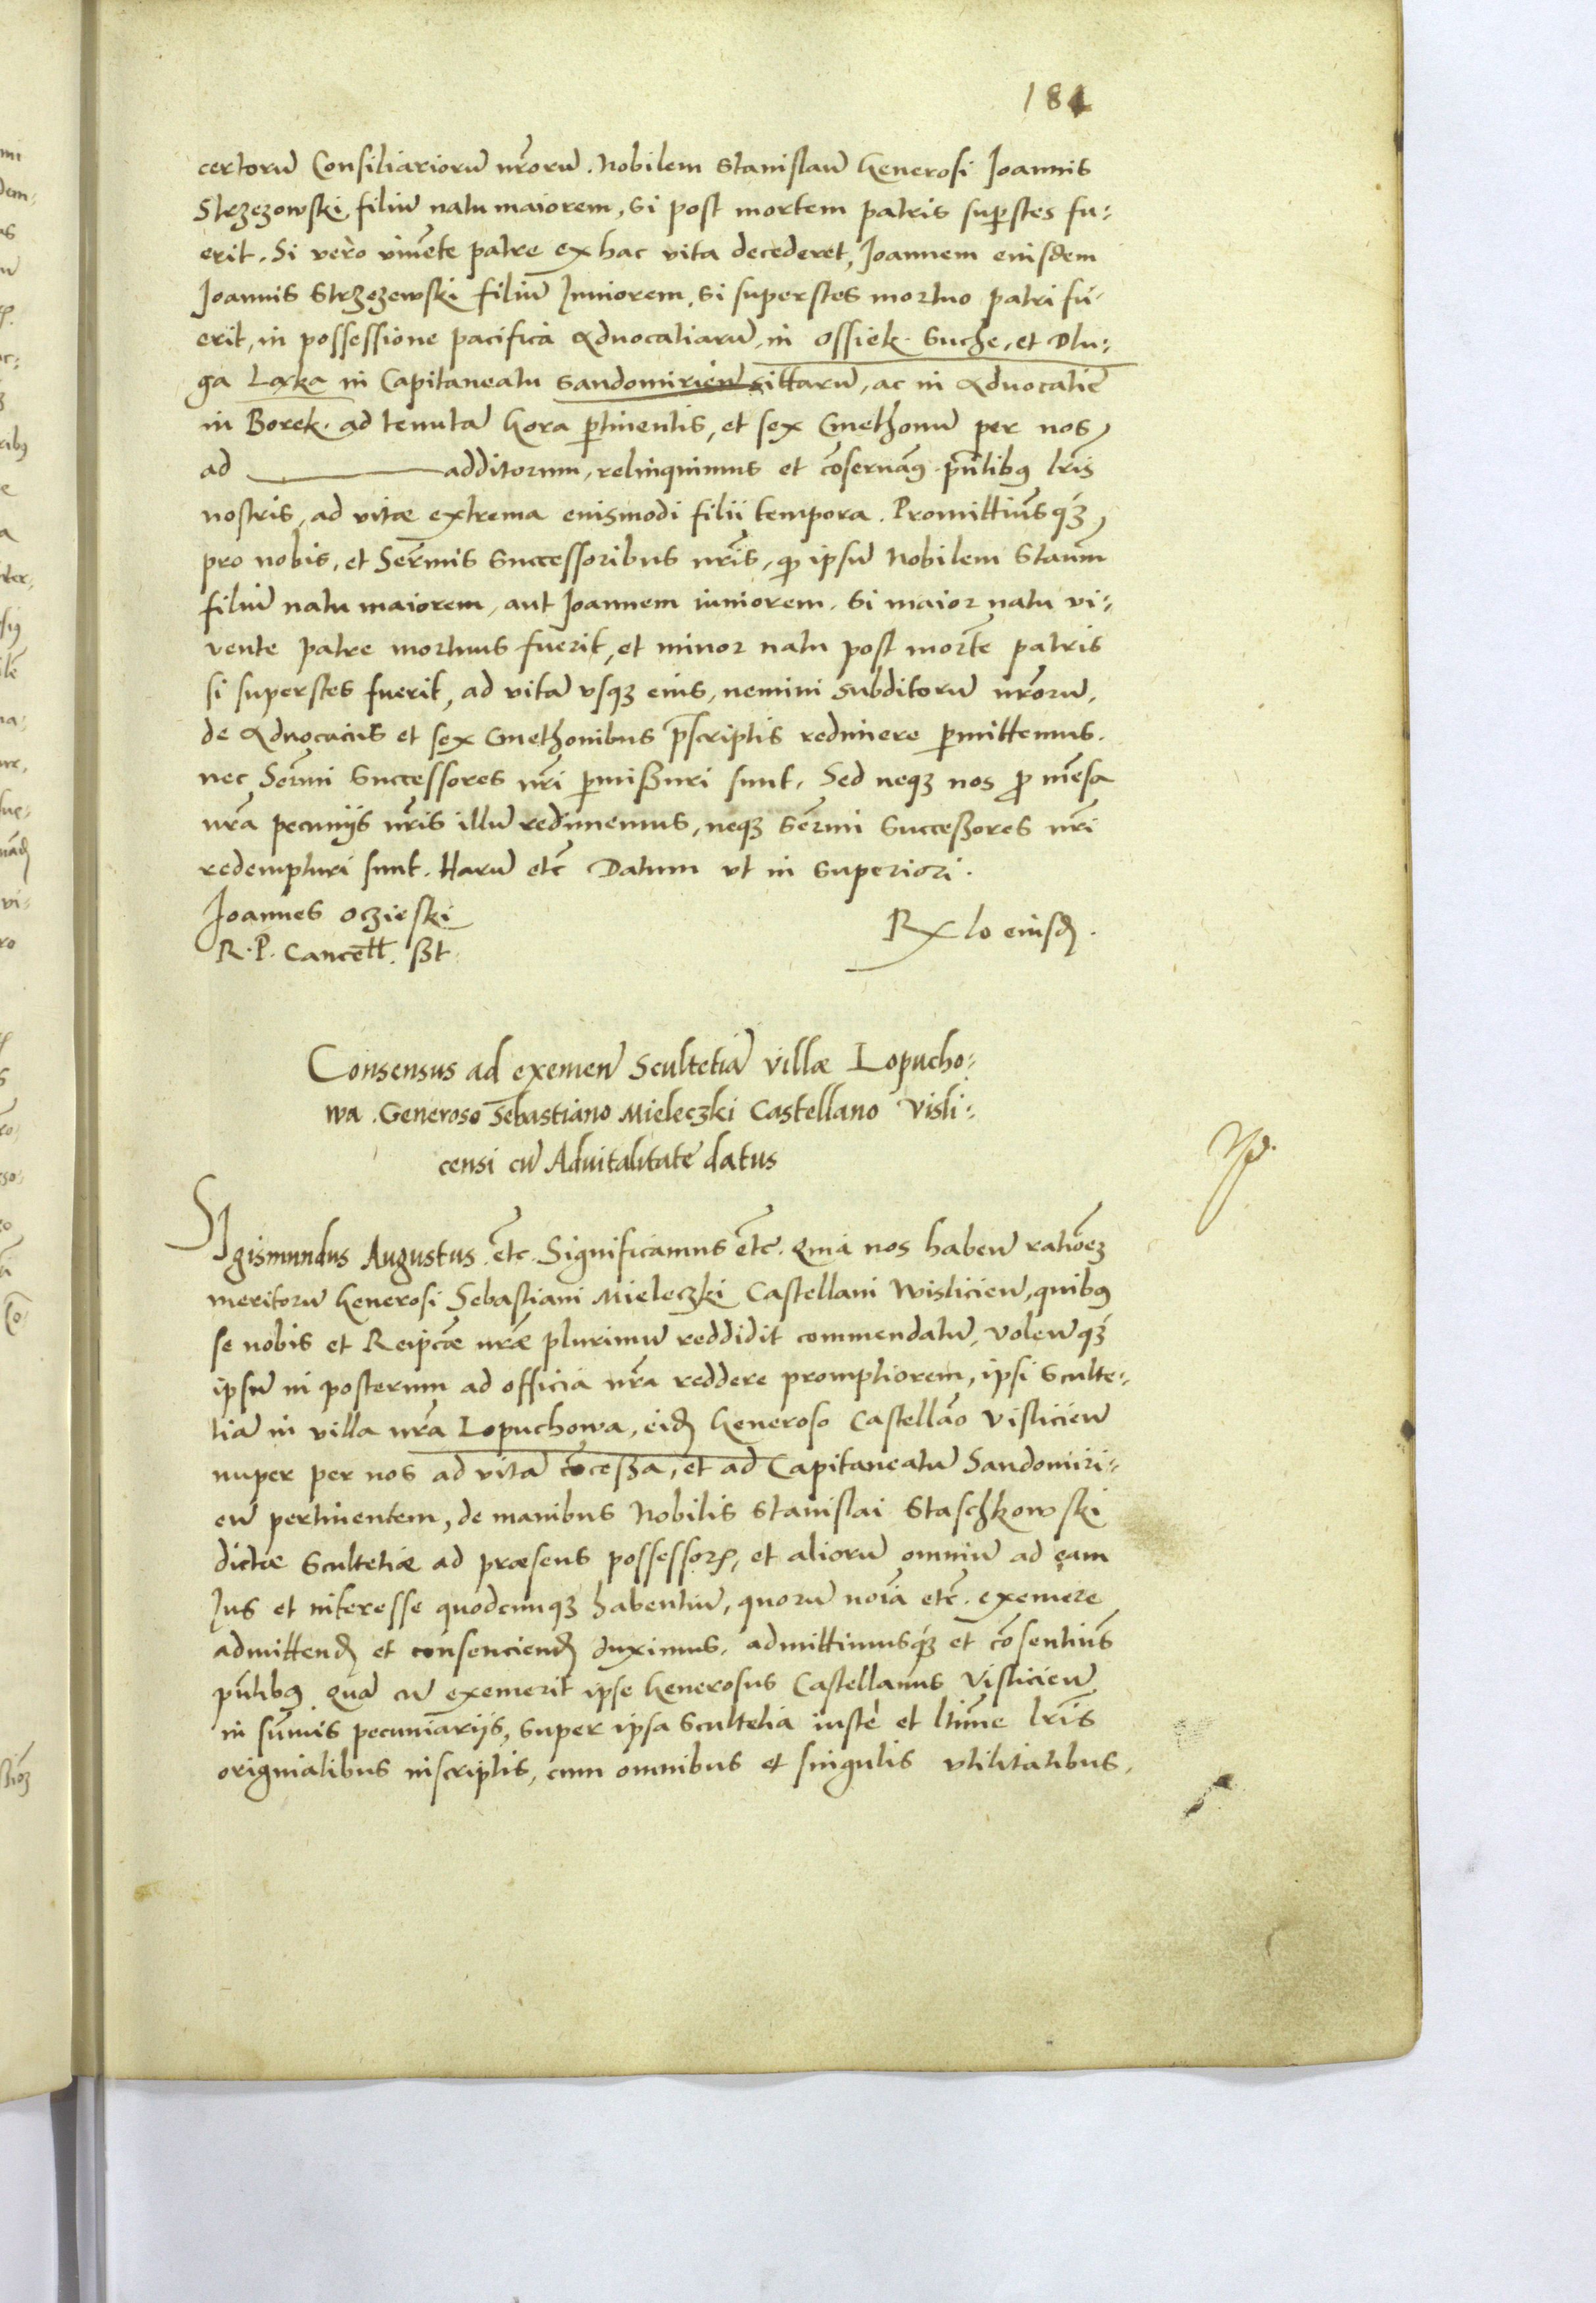 184
certorū Consiliariorū nr̄orū. Nobilem Stanislaū Generosi Joannis
Strzezowski filiū natu maiorem, si post mortem patris supstes fu-
erit. Si vero viuēte patre ex hac vita decederet, Joannem eiusdem
Joannis Strzezewski filiū Juniorem, si superstes mortuo patri fu-
erit, in possessione pacifica Aduocatiarū, in Ossiek. Suche, et Dlu-
ga Laka in Capitaneatu Sandomirień sittarū, ac in Aduocatie
in Borek. ad tenutā Gora ptinentis, et sex Cmethonū per nos
ad additorum, relinquimus et cōseruam9 pn̄tib9 lr̄is
nostris, ad vitæ extrema eiusmodi filii tempora. Promittim9q3
pro nobis, et Serm̄is Successoribus nr̄is, q ipsū Nobilem Staūm
filiū natu maiorem, aut Joannem iuniorem. Si maior natu vi-
vente patre mortuus fuerit, et minor natu post mortē patris
si superstes fuerit, ad vitā vsq3 eius, nemini subditorū nr̄orū,
de Aduocaciis et sex Cmethonibus pscriptis redimere pmittemus.
nec Serm̄i Successores nr̄i pmissuri sunt. Sed neq3 nos p mēsa
nr̄a pecunijs nr̄is illū redimemus, neq3 Serm̄i Successores nr̄i
redempturi sunt. Harū etc̄ Datum vt in Superiori.
Joannes Oczieski
R. P. Cancell. sst
Rx lo eiusd.
Consensus ad eximeñ Scultetiā villæ Lopucho-
wa. Generoso Sebastiano Mieleczki Castellano Visli-
censi cū Aduitalitate datus
SIgismundus Augustus etc. Significamus etc. Quia nos habeñ ratiōe3
meritorū Generosi Sebastiani Mieleczki Castellani Wislicień, quib9
se nobis et Reipcæ nr̄æ plurimū reddidit commendatū, voleñq3
ipsū in posterum ad officia nr̄a reddere promptiorem, ipsi Sculte-
tiā in villa nr̄a Lopuchowa, eid Generoso Castellāo Vislicień
nuper per nos ad vitā cōcessa, et ad Capitaneatū Sandomiri-
eñ pertinentem, de manibus Nobilis Stanislai Staschkowski
dictæ Scultetiæ ad præsens possessor, et aliorū omniū ad eam
Jus et interesse quodcunq3 habentiū, quorū noīa etc̄. eximere
admittend et consenciend duximus. admittimusq3 et cōsentim9
pn̄tib9 quā cū exemerit ipse Generosus Castellanus Vislicień
in sum̄is pecuniarijs, super ipsa Scultetia iuste et ltīme lr̄is
originalibus inscriptis, cum omnibus et singulis vtilitatibus,